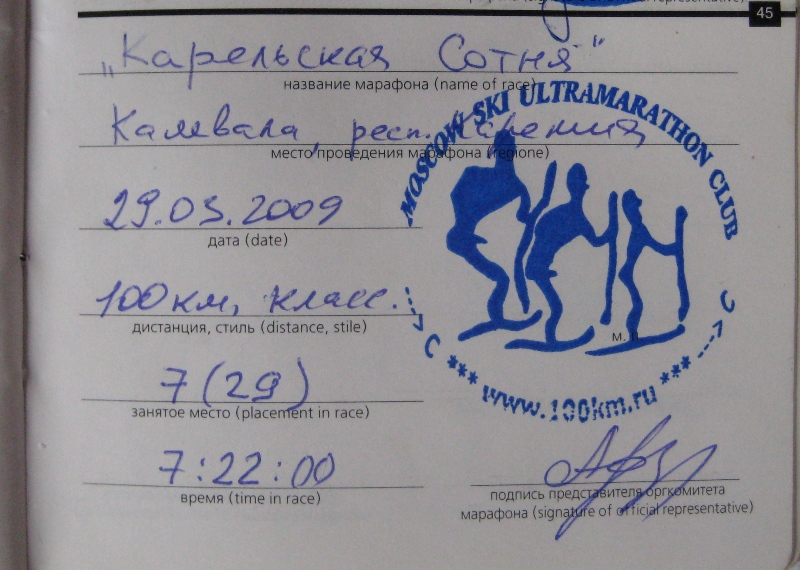 45
„Карельская Сотня"
название марафона (name of race)
Калевала, респ. Карелия
место проведения марафона (regione)
29.03.2009
дата (date)
100км, класс.
дистанция, стиль (distance, stile)
7 (29)
занятое место (placement in race)
7:22:00
время (time in race)
MOSCOW SKI ULTRAMARATHON CLUB
м. п.
*** www.100km.ru ***
подпись представителя оргкомитета
марафона (signature of official representative)